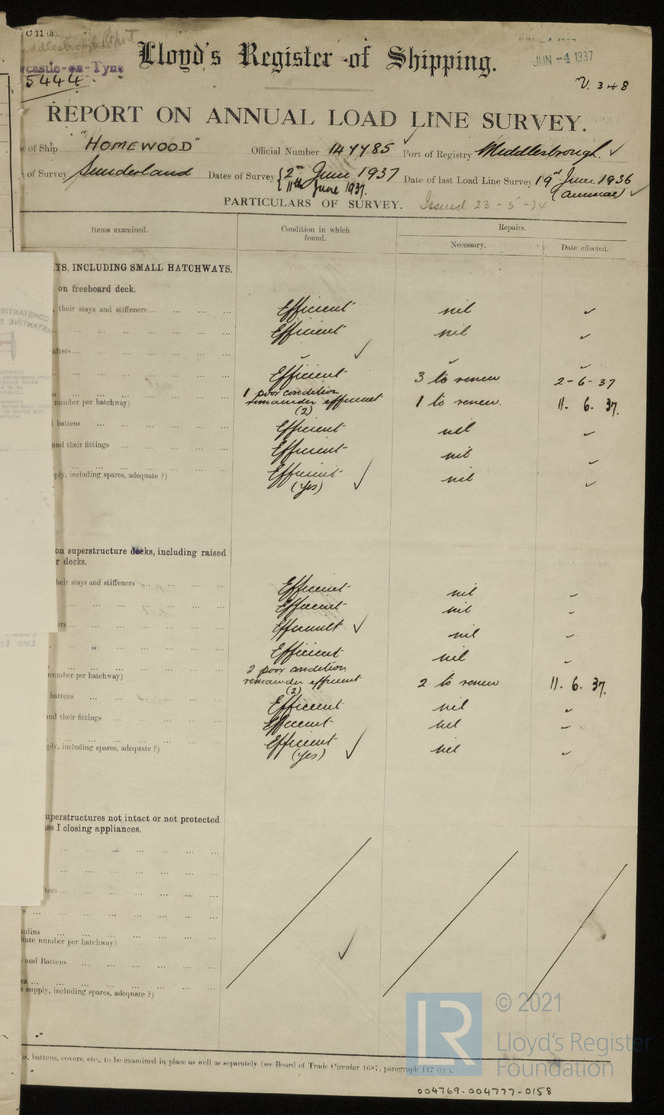 C 11 (a).
Lloyd's Register of Shipping.
castle-on-Tyne
JUN -4 1937
5444
V. 3+8
REPORT ON ANNUAL LOAD LINE SURVEY.
e of Ship "HOMEWOOD" Official Number 147785 Port of Registry Middlesbrough. ✓
of Survey Sunderland Dates of Survey { 2nd June 1937 Date of last Load Line Survey 19th June 1936
11th June 1937. (annual) ✓
PARTICULARS OF SURVEY. Issued 23-5-34
Items examined. Condition in which found. Repairs.
Necessary. Date effected.
YS, INCLUDING SMALL HATCHWAYS.
on freeboard deck.
, their stays and stiffeners ... Efficient nil ✓
Efficient nil ✓
afters ... ✓ ✓ ✓
Efficient 3 to renew 2-6-37
1 poor condition
number per hatchway) remainder efficient 1 to renew. 11. 6. 37.
(2)
battens Efficient nil ✓
and their fittings Efficient nil ✓
ply, including spares, adequate ?) Efficient ✓ nil ✓
(Yes)
on superstructure decks, including raised
r decks.
their stays and stiffeners Efficient nil ✓
Efficient nil ✓
ers ... Efficient ✓ nil ✓
Efficient nil ✓
2 poor condition
number per hatchway) remainder efficient 2 to renew 11. 6. 37.
(2)
battens Efficient nil ✓
and their fittings Efficient nil ✓
ply, including spares, adequate ?) Efficient ✓ nil ✓
(Yes)
uperstructures not intact or not protected
ss I closing appliances.
ters ...
ulins
tate number per hatchway)
and Battens ✓
s supply, including spares, adequate ?)
s, battens, covers, etc., to be examined in place as well as separately (see Board of Trade Circular 1687, paragraph 117
004769-004777-0158
LR
© 2021
Lloyd's Register
Foundation